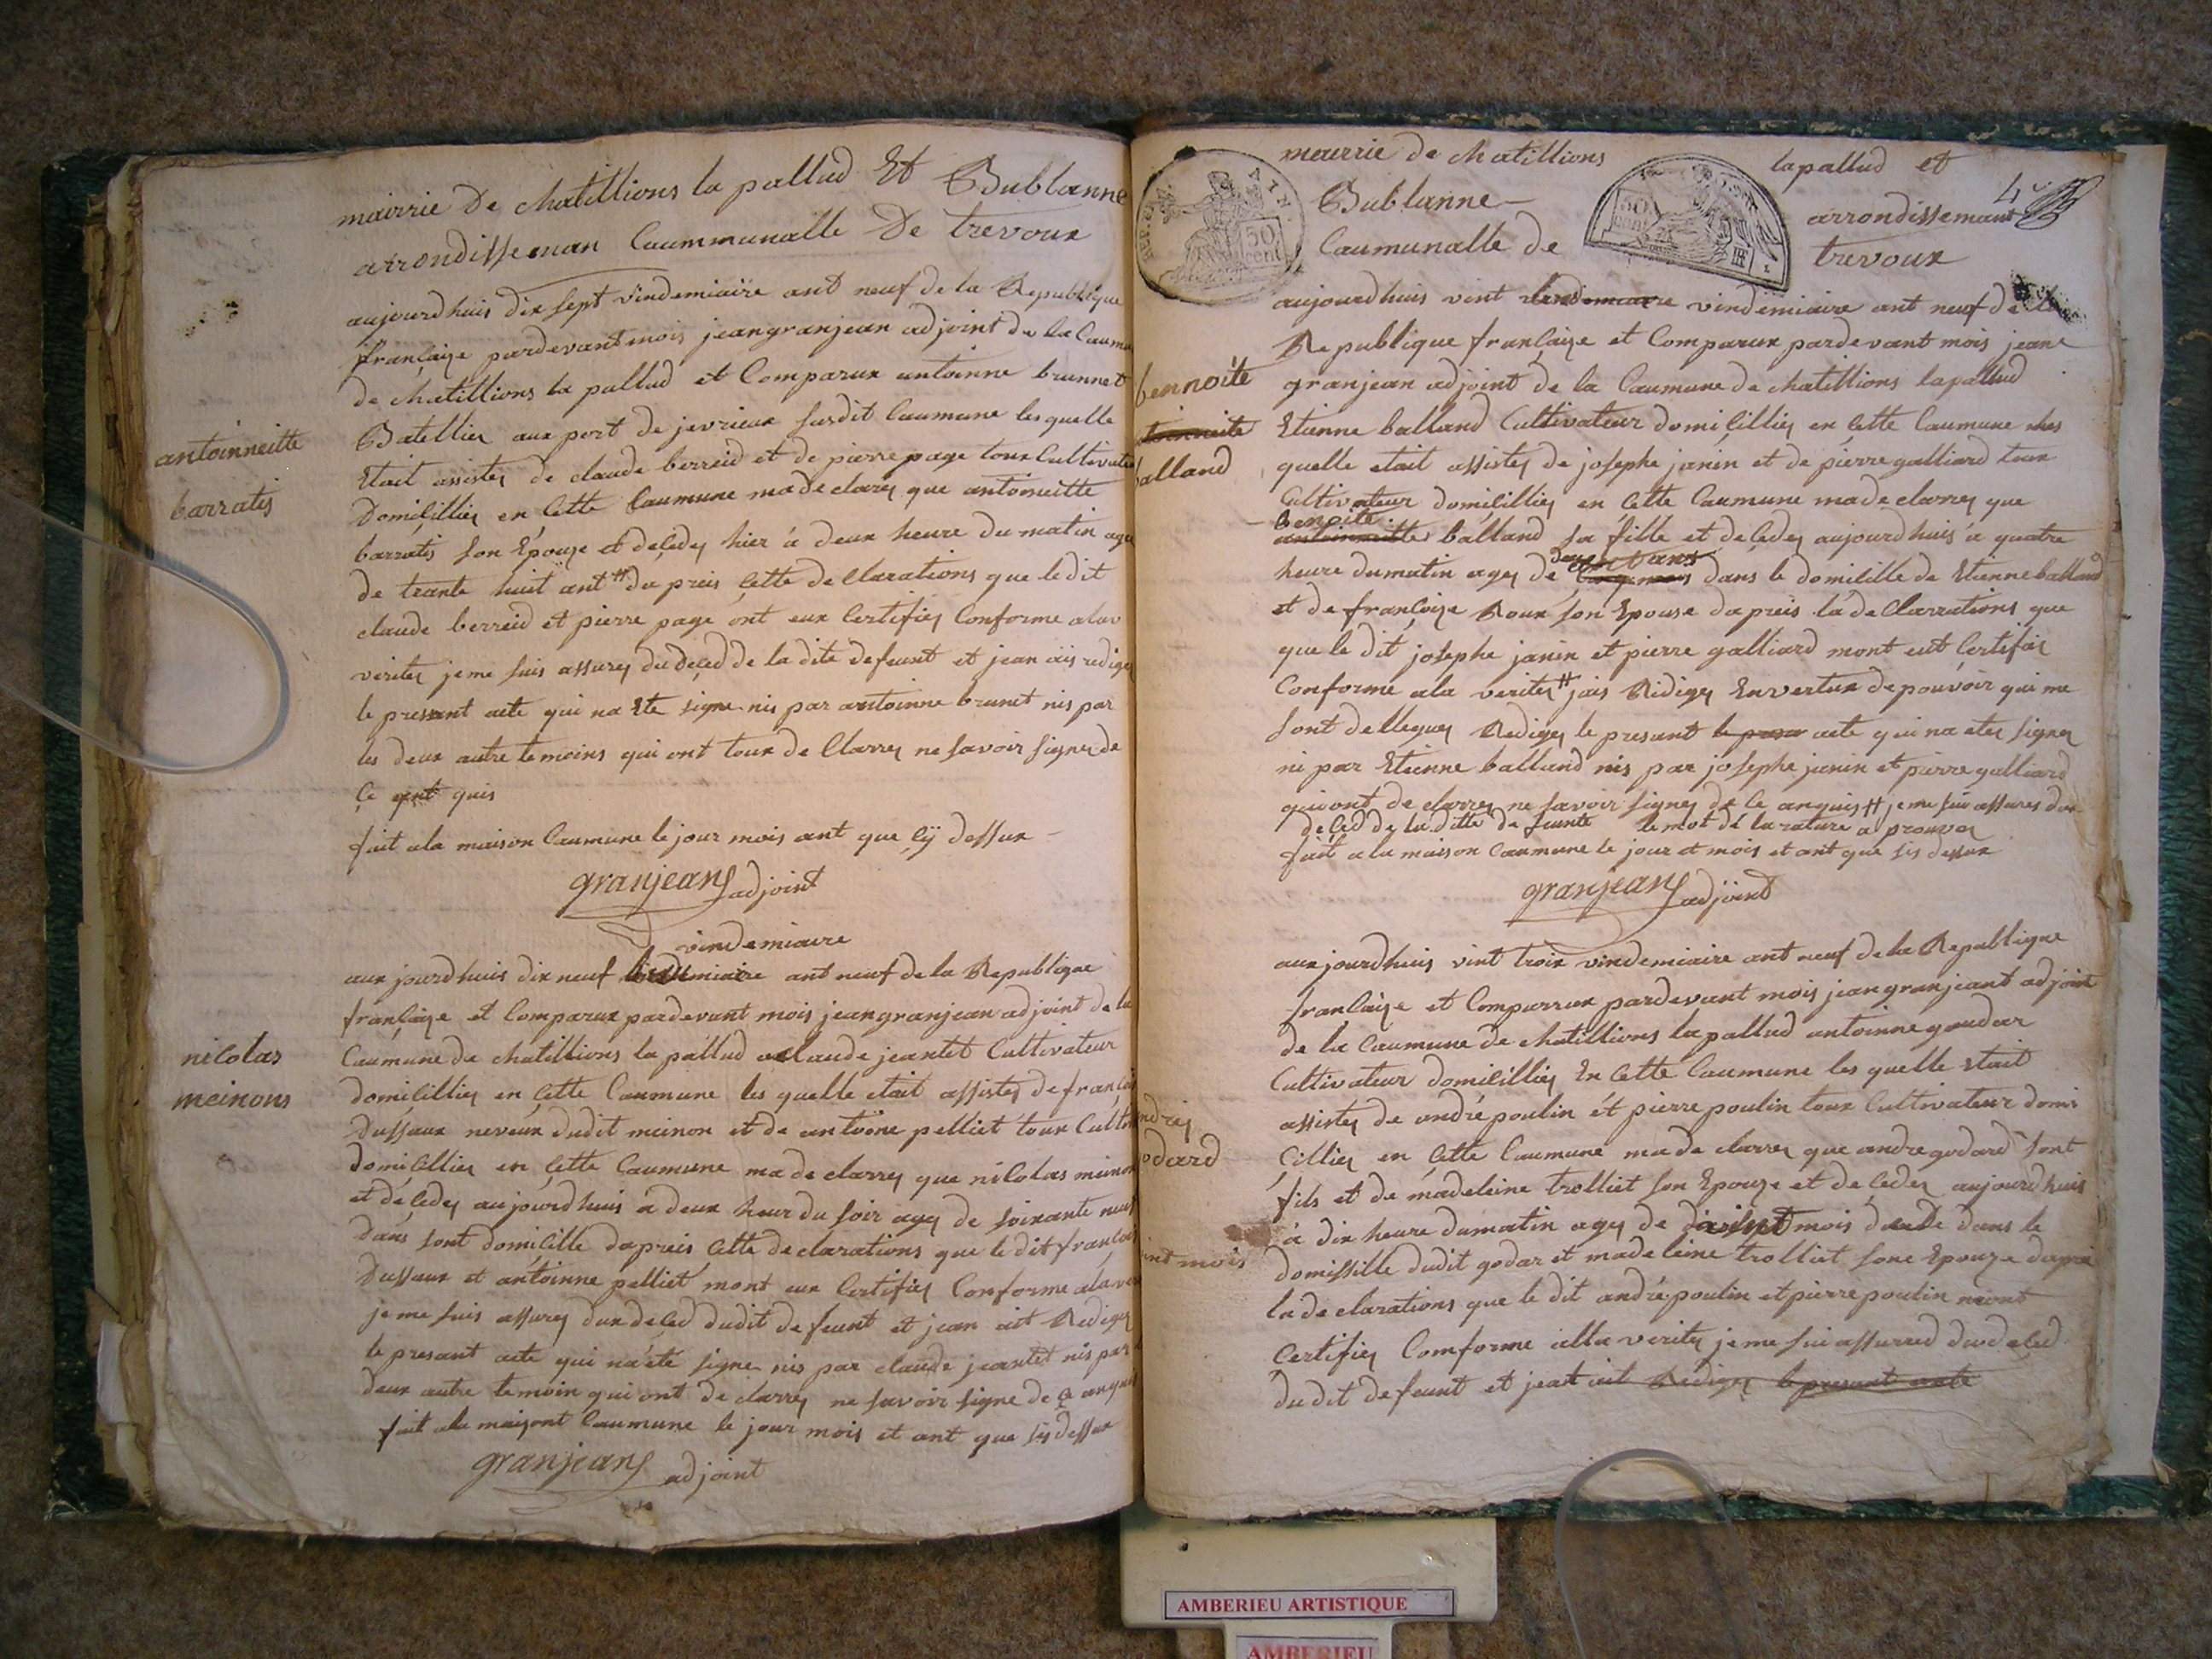 mairrie De chatillions la pallud Et Bublanne
arrondissenan Caummunalle De trevoux
aujourdhuis dix sept vindemiaire ant neuf de la Republique
française pardevant mois jeangranjean adjoint de la Caumu
de chatillions la pallud et Comparux antoinne brunnet
Batellier aux port de jevrieux susdit Caumune les quelle
antoinneitte
Etait assistey de claude berreid et de pierre page toux Cultivate
barratis
Domicilliey en Cette Caumune ma declarey que antoineitte
barratis son Epouze et decedey hier à deux heure du matin agey
de trante huit ant # da preis Cette declarations que ledit
claude berreid et pierre page ont eux Certifiey Conforme alav
veritey jeme suis assurey du deced de la dite defeunt et jean ais redigey
le present acte qui na Ete signe nis par antoinne brunet nis par
les deux autre temoins qui ont toux declarrey ne savoir signey de
Ce quis
fait ala maison Caumune le jour mois ant que cy dessux
granjean adjoint
vindemiaire
aux jourdhuis dix neuf ant neuf de la Republique
française et Comparux pardevant mois jeangranjean adjoint de la
nicolas
Caumune de chatillions la pallud claude jeantet Cultivateur
meinons
domicilliey en Cette Caumune les quelle etait assistey de françois
Dussaux neveux dudit meinon et de antoine pelliet toux Cultiv
domicilliey en Cette Caumune ma declarrey que nicolas meinon
et decedey aujourdhuis a deux heur du soir agey de soixante neuf
dans sont domicille dapreis Cette declarations que ledit françois
Dussaux et antoinne pelliet mont eux Certifiey Conforme ala ve
jeme suis assurey dux deced dudit defeunt et jean ait Redigey
le presant acte qui na été signe nis par claude jeantet nis par
deux autre temoin qui ont declarrey ne savoir signe de ce anquis
fait ala maizont Caumune le jour mois et ant que sis dessux
granjean adjoint
mairrie de chatillions lapallud et
4
Bublanne arrondissemant
Caumunalle de trevoux
AIN
50 cent
50
aujourdhuis vint vindemiaire ant neuf de la
Republique française et Comparux pardevant mois jean
bennoite
granjean adjoint de la Caumune de chatillions lapallud
toinneite
Etienne balland Cultivateur domicilliey en Cette Caumune les
balland
quelle etait assistey de josephe janin et de pierre galliard toux
Cultivateur domicilliey en Cette Caumune ma declarrey que
benoite
antoinneitte balland sa fille et decedey aujourdhuis a quatre
heure dumatin agey de dans le domicille de Etienne balland
et de françoise Roux son Epouse dapreis la declarrations que
que le dit josephe janin et pierre galliard mont eut Certifiey
Conforme ala veritey # jais Ridigey Envertux depouvoir qui me
sont delleguey Redigey le presant le presan acte qui na etey signey
ni par Etienne balland nis par josephe janin et pierre galliard
qui ont declarrey ne savoir signey de ce anquis # jeme suis assures dux
deced de la ditte defeunte le mot dé la rature a prouvey
fait ala maison Caumune le jour et mois et ant que sis dessux
granjean adjoint
aux jourdhuis vint troix vindemiaire ant neuf de la Republique
française et Comparrux pardevant mois jeangranjeant adjoint
de la Caumune de chatillions la pallud antoinne goudar
Cultivateur domicilliey En Cette Caumune les quelle Etait
ndrey
assistey de andré poulin ét pierre poulin toux Cultivateur domi
odard
Cilliey en Cette Caumune ma declarrey que andre godard sont
fils et de madeleine trolliet son Epouze et decedey aujourdhuis
à dix heure dumatin agey de mois dans le
int mois
domissille dudit godar et madeleine trolliet sone Epouze dapreis
la declarations que le dit andré poulin et pierre poulin mont
Certifiey Comforme alla veritey jeme sui assurred dud eced
dudit defeunt et jeat ait Redigey le presant acte
AMBERIEU ARTISTIQUE
AMBERIEU